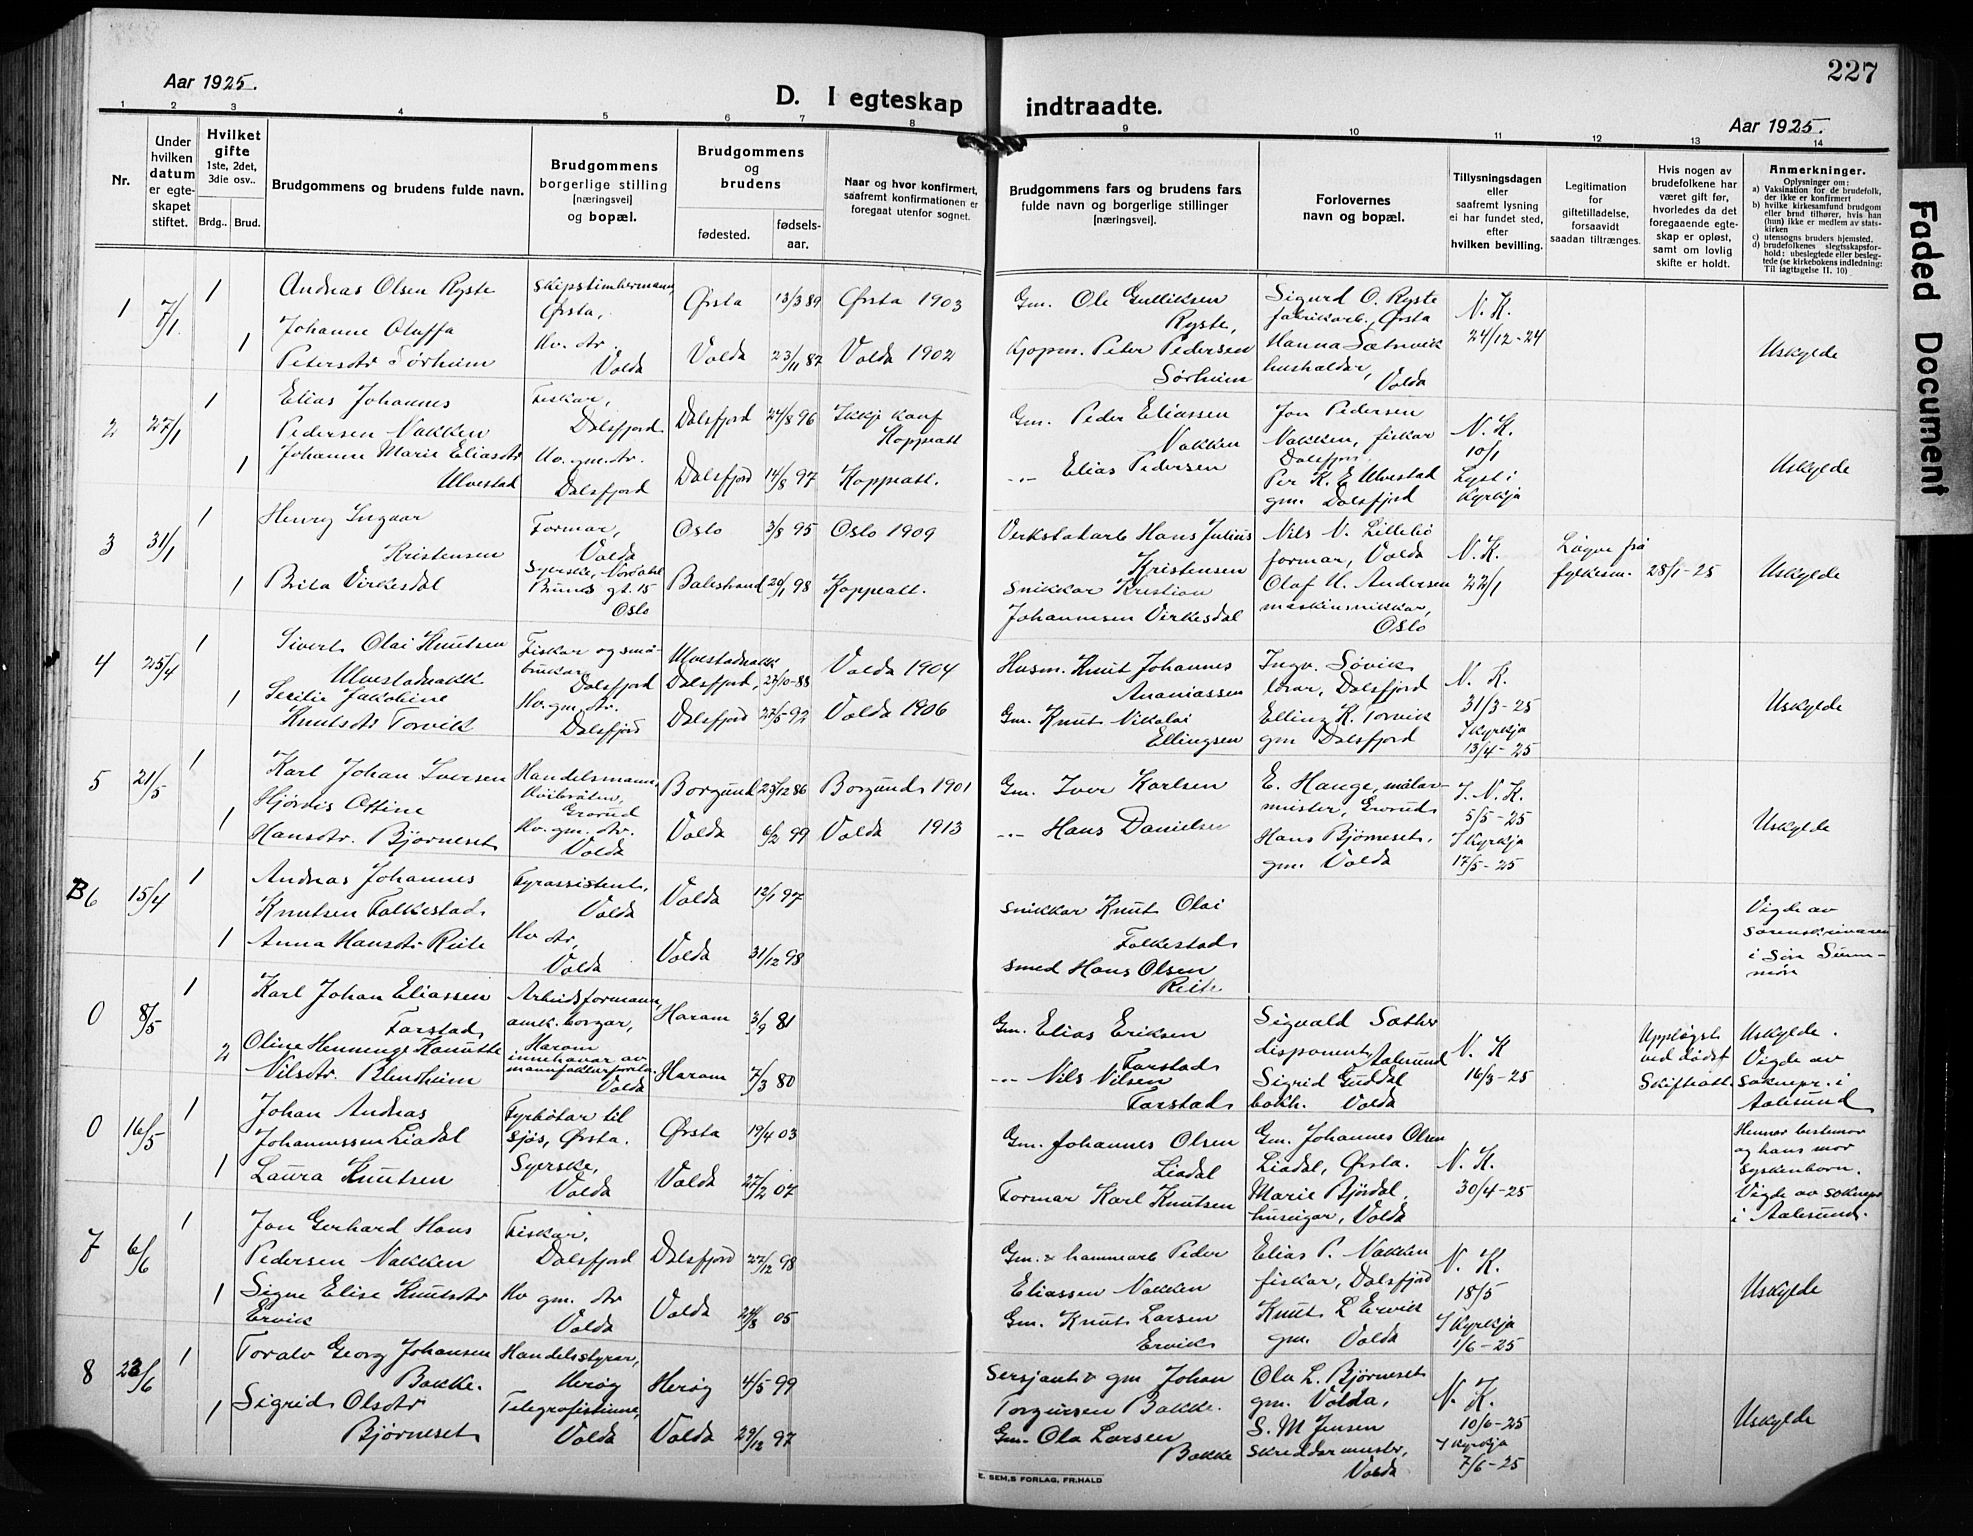 227
Aar 1925.
D. I egteskap indtraadte.
Aar 1925.
1 2 3 4 5 6 7 8 9 10 11 12 13 14
Nr.
Under
hvilken
datum
er egte-
skapet
stiftet.
Hvilket
gifte
1ste, 2det,
3die osv..
Brdg.. Brud.
Brudgommens og brudens fulde navn.
Brudgommens
borgerlige stilling
[næringsvei]
og bopæl.
Brudgommens
og
brudens
fødested.
fødsels-
aar.
Naar og hvor konfirmert,
saafremt konfirmationen er
foregaat utenfor sognet.
Brudgommens fars og brudens fars
fulde navn og borgerlige stillinger
[næringsvei].
Forlovernes
navn og bopæl.
Tillysningsdagen
eller
saafremt lysning
ei har fundet sted,
efter
hvilken bevilling.
Legitimation
for
giftetilladelse,
forsaavidt
saadan tiltrænges.
Hvis nogen av
brudefolkene har
været gift før,
hvorledes da det
foregaaende egte-
skap er opløst,
samt om lovlig
skifte er holdt.
Anmerkninger.
Oplysninger om:
a) Vaksination for de brudefolk,
der ikke er konfirmert
b) hvilke kirkesamfund brudgom
eller brud tilhører, hvis han
(hun) ikke er medlem av stats-
kirken
c) utensogns bruders hjemsted.
d) brudefolkenes slegtsskapsfor-
hold: ubeslegtede eller besleg-
tede (se kirkebokens indledning:
Til iagttagelse II. 10)
Faded Document
1 7/1 1 Andreas Olsen Ryste
Skipstimbermann,
Ørsta,
Ørsta 13/3 89 Ørsta 1903
Gm. Ole Gulliksen
Ryste,
Sigurd O. Ryste
fabrikarb., Ørsta
N. K.
24/12-24
1 Johanne Oluffa
Petersdtr Sørheim
Hv. dtr.
Volda
Volda 23/11 87 Volda 1902
Kjøpm. Peter Pedersen
Sørheim
Hanna Sætrevik
husholdar,
Volda
Uskylde
2 27/1 1 Elias Johannes
Pedersen Nakken
Fiskar,
Dalsfjord
Dalsfjord 24/8 96 Ikkje konf
Koppeatt
Gm. Peder Eliassen
Nakken
Jon Pedersen
Nakken, fiskar
Dalsfjord
N. K.
10/1
1 Johanne Marie Eliasdtr
Ulvestad
Hv. gm. dtr.
Dalsfjord
Dalsfjord 14/8 97 Koppeatt.
Elias Pedersen
Per K. E Ulvestad
gm. Dalsfjord
Lyst i
Kyrkja
Uskylde
3 31/1 1 Henry Ingvar
Kristensen
Formar,
Volda
Oslo 3/8 95 Oslo 1909
Verkstadarb Hans Julius
Kristensen
Nils N. Lillebø
formar, Volda
N. K.
22/1
Løyve frå
fylkesm.
28/1-25
Uskylde
1 Brita Virkesdal
Syerske, Nordahl
Bruns gt. 15
Oslo
Balestrand 20/1 98 Koppeatt.
Snikkar Kristian
Johannesen Virkesdal
Olaf U. Andersen
maskinsnikkar,
Oslo
4 25/4 1 Sivert Olai Knutsen
Ulvestadnakk
Fiskar og små-
brukar,
Dalsfjord
Ulvestadnakk,
Dalsfjord, 27/10-88 Volda 1904
Husm. Knut Johannes
Ananiassen
Ingv. Søvik
lærar, Dalsfjord
N. K.
31/3-25
1 Secilie Jakobine
Knutsdtr Torvik
Hv. gm. dtr.
Dalsfjord
Dalsfjord 27/5-92 Volda 1906
Gm. Knut Nikolai
Ellingsen
Elling K. Torvik
gm Dalsfjord
I kyrkja
13/4-25
Uskylde
5 21/5 1 Karl Johan Iversen
Handelsmann,
Grorud
Borgund 25/12 86 Borgund 1901
Gm. Iver Karlsen
E. Hauge, målar-
meister, Grorud
I. N. K.
5/5-25
1 Hjørdis Ottine
Hansdtr. Bjørneset
Hv. gm. dtr.
Volda
Volda 6/2 99 Volda 1913
Hans Danielsen
Hans Bjørneset,
gm. Volda
I kyrkja
17/5-25
Uskylde
B6 15/4 1 Andreas Johannes
Knutsen Folkestad
Fyrassistent,
Volda
Volda 12/1 97
Snikkar Knut Olai
Folkestad
Vigde av
sorenskrivaren
i Søre Sunn-
møre
1 Anna Hansdtr Reite
Hv dtr,
Volda
Volda 31/12 98
Smed Hans Olsen
Reite
0 8/5 1 Karl Johan Eliassen
Farstad
Arbeidsformann,
amk. borgar,
Haram
Haram 3/9 81
Gm. Elias Eriksen
Farstad
Sigvald Sæther
disponent, Aalesund
N. K
16/3-25
Uppløyst
ved dødsf
Skifteatt.
Uskylde.
Vigde av
soknepr. i
Aalesund
2 Oline Henninge Hanutte
Nilsdtr. Blindheim
innehavar av
manufakturforretn.
Volda
Haram 7/3 80
Nils Nilsen
Farstad
Sigrid Guddal
bokh. Volda
0 16/5 1 Johan Andreas
Johannessen Liadal
Fyrbøtar til
sjøs, Ørsta.
Ørsta 19/4 03
Gm. Johannes Olsen
Liadal
Gm. Johannes Olsen
Liadal, Ørsta.
N. K.
30/4-25
Hennar bestemor
og hans mor
syskenborn.
Vigde av soknepr
i Aalesund.
1 Laura Knutsen
Syerske,
Volda
Volda 27/2 07
Formar Karl Knutsen
Marie Bjørdal
huseigar, Volda
7 6/6 1 Jon Gerhard Hans
Pedersen Nakken
Fiskar,
Dalsfjord
Dalsfjord 27/12 98
Gm. & hammarb Peder
Eliassen Nakken
Elias P. Nakken
fiskar, Dalsfjord
N. K.
18/5
Uskylde
1 Signe Elise Knutsdtr
Ervik
Hv gm. dtr
Volda
Volda 24/8 05
Gm. Knut Larsen
Ervik
Knut L Ervik
gm. Volda
I kyrkja
1/6-25
8 23/6 1 Toralv Georg Johansen
Bakke.
Handelsstyrar,
Herøy
Herøy 4/5 99
Sersjant & gm Johan
Torgersen Bakke.
Ola L. Bjørneset
gm. Volda,
N. K.
10/6-25
1 Sigrid Olsdtr
Bjørneset
Telegrafistinne,
Volda
Volda 29/12 97
Gm. Ola Larsen
Bakke
S. M Jensen
Skreddarmeistr,
Volda
I kyrkja
7/6-25
Uskylde
E. SEM,S FORLAG, FR.HALD